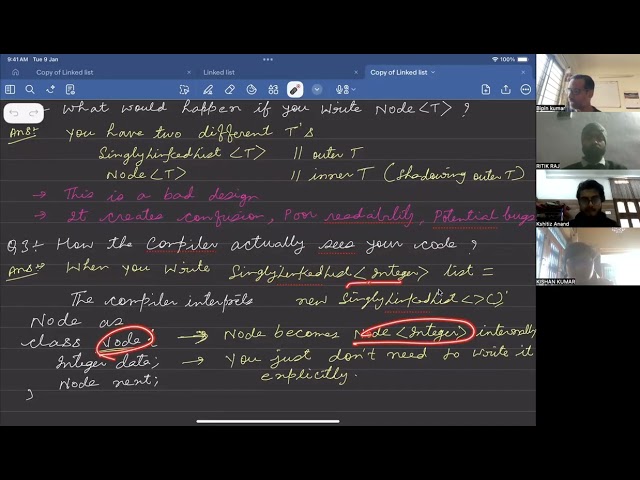 9:41 AM Tue 9 Jan
100%
Copy of Linked list
Linked list
Copy of Linked list
What would happen if you write Node<T> ?
Ans:- You have two different T's
SinglyLinkedList <T> // outer T
Node<T> // inner T (shadowing outer T)
→ This is a bad design
→ It creates confusion, Poor readability, Potential bugs
Q3:- How the Compiler actually sees your code ?
Ans:- When you write SinglyLinkedList<Integer> list =
new SinglyLinkedList<>();
The compiler interprets
Node as
class Node {
Integer data;
Node next;
}
→ Node becomes Node<Integer> internally
→ You just don't need to write it
explicitly.
Bipin kumar
RITIK RAJ
Kshitiz Anand
KISHAN KUMAR